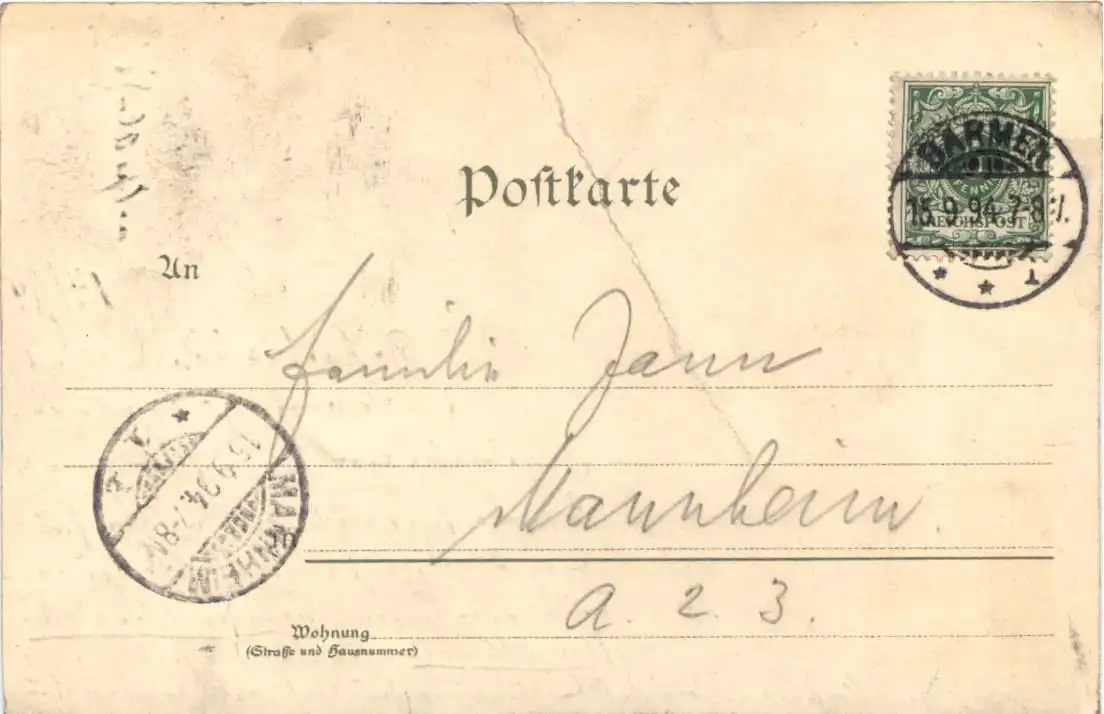 Postkarte
BARMEN
PFENNIG
15.9.94.7-8V.
REICHSPOST
1
An
Familie Jann
Mannheim
MANNHEIM
15.9.94.7-8N
1.
A. 2. 3.
Wohnung
(Straße und Hausnummer)